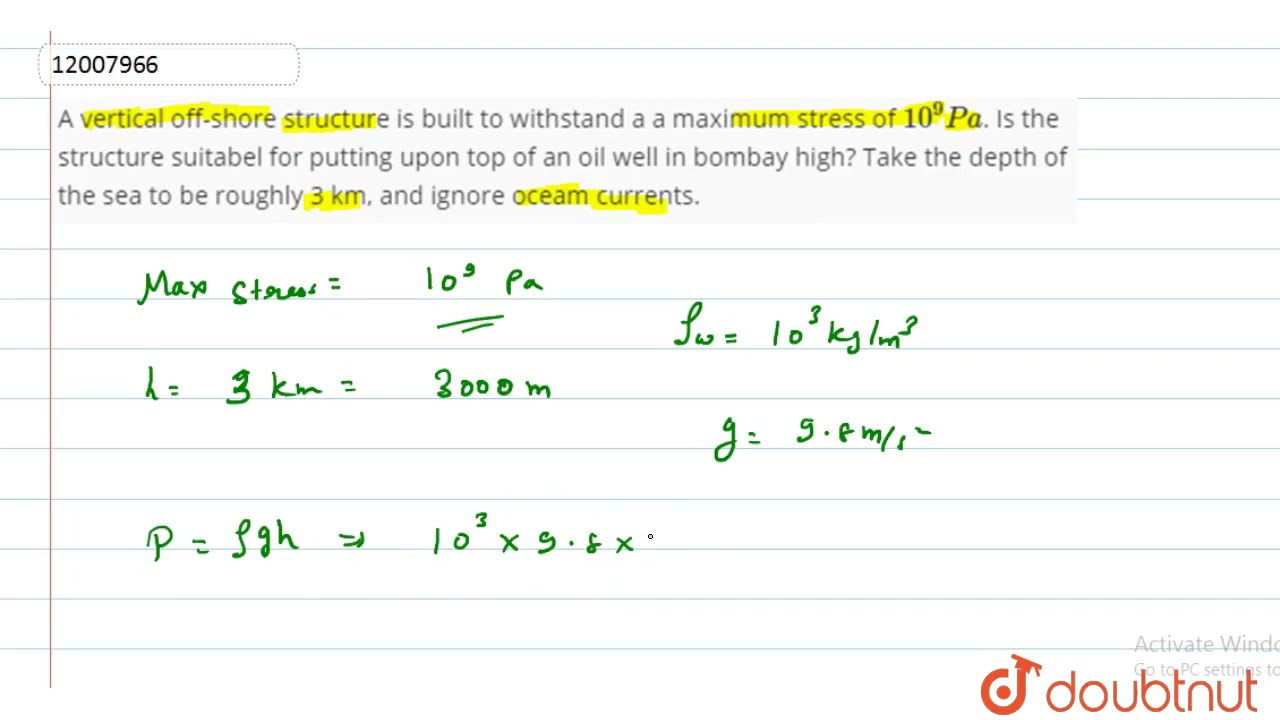 12007966
A vertical off-shore structure is built to withstand a a maximum stress of 10⁹Pa. Is the
structure suitabel for putting upon top of an oil well in bombay high? Take the depth of
the sea to be roughly 3 km, and ignore oceam currents.
Max stress = 10⁹ Pa
ρw = 10³ kg/m³
h = 3 km = 3000 m
g = 9.8 m/s²
P = ρgh ⇒ 10³ × 9.8 ×
Activate Windo
Go to PC settings to
doubtnut